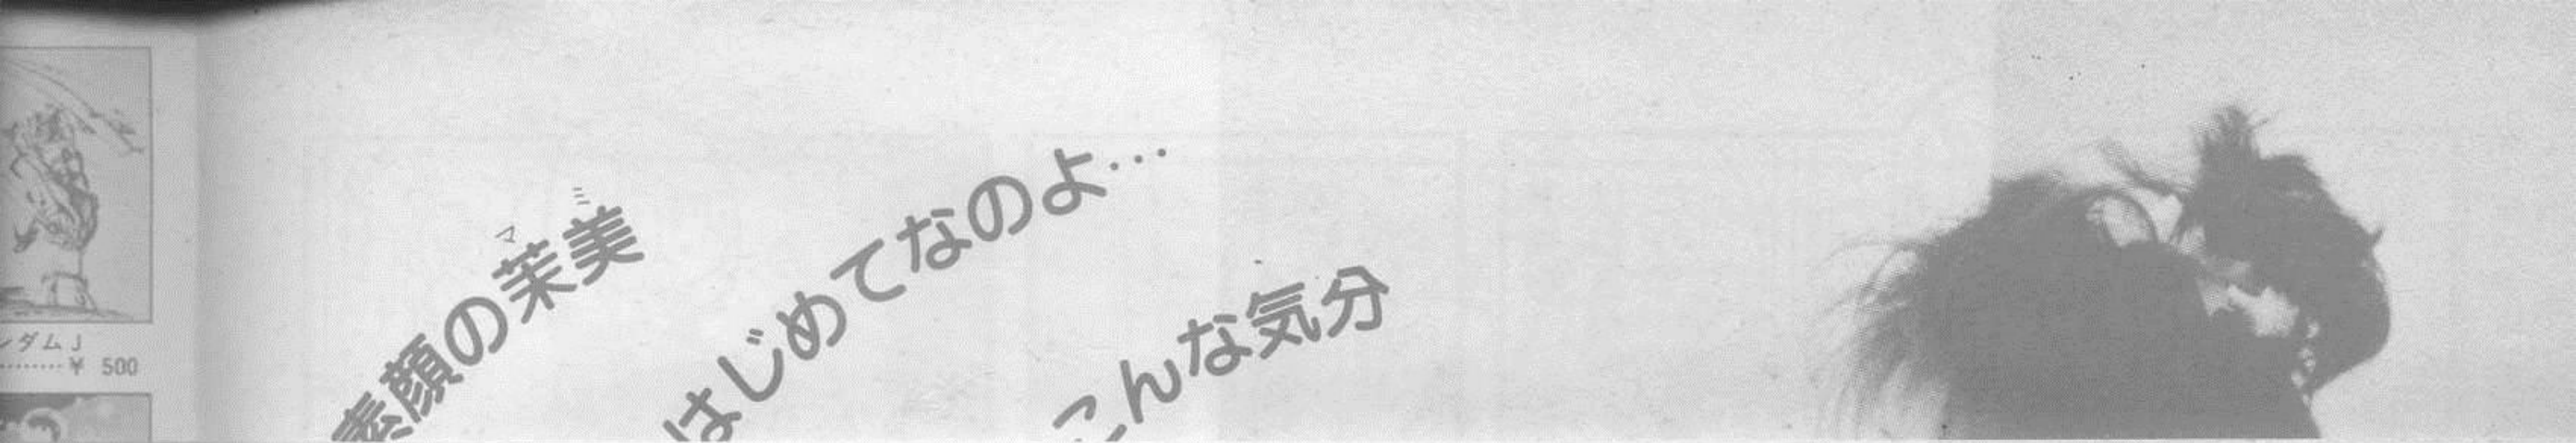 ンダムJ
………¥ 500
素顔の茉美
マ ミ
はじめてなのよ…
こんな気分